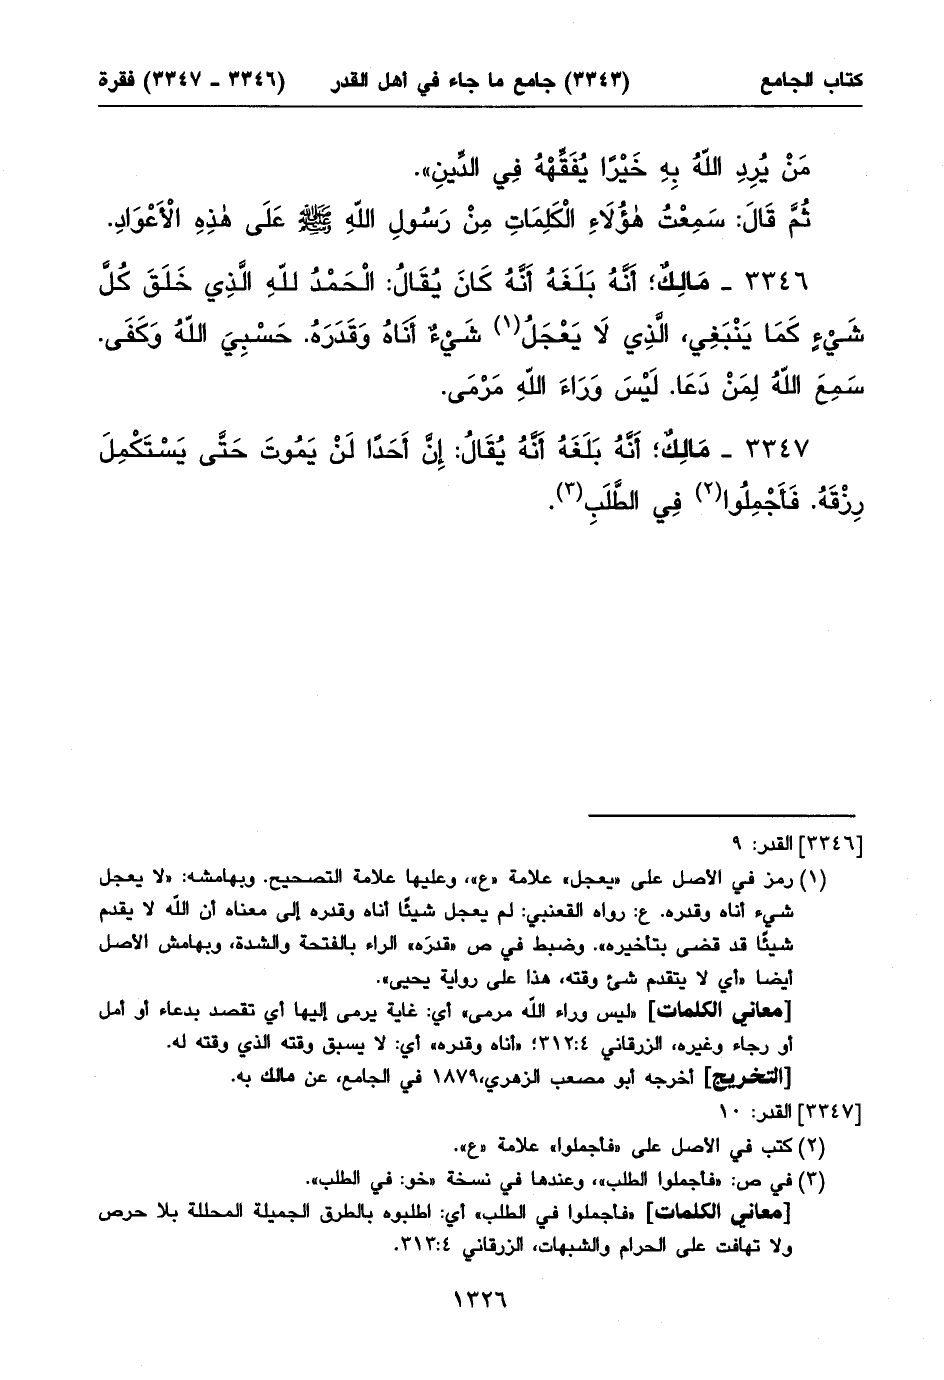 كتاب الجامع (٣٣٤٣) جامع ما جاء في أهل القدر (٣٣٤٦ - ٣٣٤٧) فقرة
مَنْ يُرِدِ اللّهُ بِهِ خَيْرًا يُفَقِّهْهُ فِي الدِّينِ».
ثُمَّ قَالَ: سَمِعْتُ هٰؤُلَاءِ الْكَلِمَاتِ مِنْ رَسُولِ اللّهِ ﷺ عَلَى هٰذِهِ الْأَعْوَادِ.
٣٣٤٦ - مَالِكٌ؛ أَنَّهُ بَلَغَهُ أَنَّهُ كَانَ يُقَالُ: الْحَمْدُ للّهِ الَّذِي خَلَقَ كُلَّ
شَيْءٍ كَمَا يَنْبَغِي، الَّذِي لَا يَعْجَلُ(١) شَيْءٌ أَنَاهُ وَقَدَرَهُ. حَسْبِيَ اللّهُ وَكَفَى.
سَمِعَ اللّهُ لِمَنْ دَعَا. لَيْسَ وَرَاءَ اللّهِ مَرْمَى.
٣٣٤٧ - مَالِكٌ؛ أَنَّهُ بَلَغَهُ أَنَّهُ يُقَالُ: إِنَّ أَحَدًا لَنْ يَمُوتَ حَتَّى يَسْتَكْمِلَ
رِزْقَهُ. فَأَجْمِلُوا(٢) فِي الطَّلَبِ(٣).
[٣٣٤٦] القدر: ٩
(١) رمز في الأصل على «يعجل» علامة «ع»، وعليها علامة التصحيح. وبهامشه: «لا يعجل
شيء أناه وقدره. ع: رواه القعنبي: لم يعجل شيئًا أناه وقدره إلى معناه أن اللّه لا يقدم
شيئًا قد قضى بتأخيره». وضبط في ص «قدرَه» الراء بالفتحة والشدة، وبهامش الأصل
أيضا «أي لا يتقدم شئ وقته، هذا على رواية يحيى».
[معاني الكلمات] «ليس وراء اللّه مرمى» أي: غاية يرمى إليها أي تقصد بدعاء أو أمل
أو رجاء وغيره، الزرقاني ٣١٢:٤؛ «أناه وقدره» أي: لا يسبق وقته الذي وقته له.
[التخريج] أخرجه أبو مصعب الزهري،١٨٧٩ في الجامع، عن مالك به.
[٣٣٤٧] القدر: ١٠
(٢) كتب في الأصل على «فأجملوا» علامة «ع».
(٣) في ص: «فأجملوا الطلب»، وعندها في نسخة «خو: في الطلب».
[معاني الكلمات] «فأجملوا في الطلب» أي: اطلبوه بالطرق الجميلة المحللة بلا حرص
ولا تهافت على الحرام والشبهات، الزرقاني ٣١٣:٤.
١٣٢٦